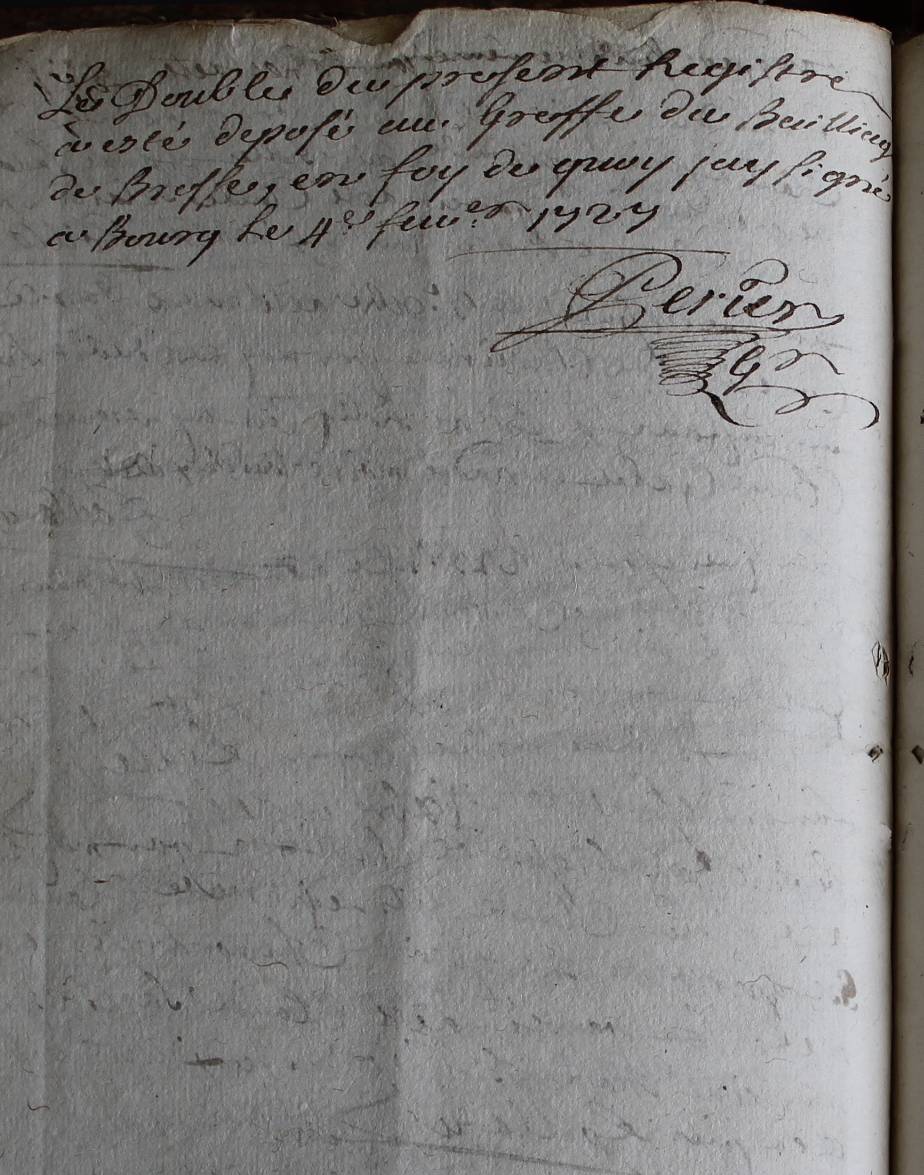 Le Double du present Registre
a esté deposé au Greffe du Bailliag
de Bresse, en foy de quoy jay signé
a Bourg le 4e fevrer 1727
Perier
Gr